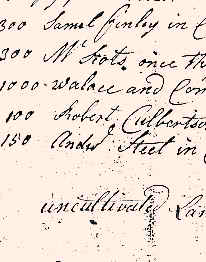 300 Saml. Finley in
300 Mr. Kots. once th
1000 Walace and Com
100 Robert Culbertso
150 Andw. Steet in
uncultivated Lan